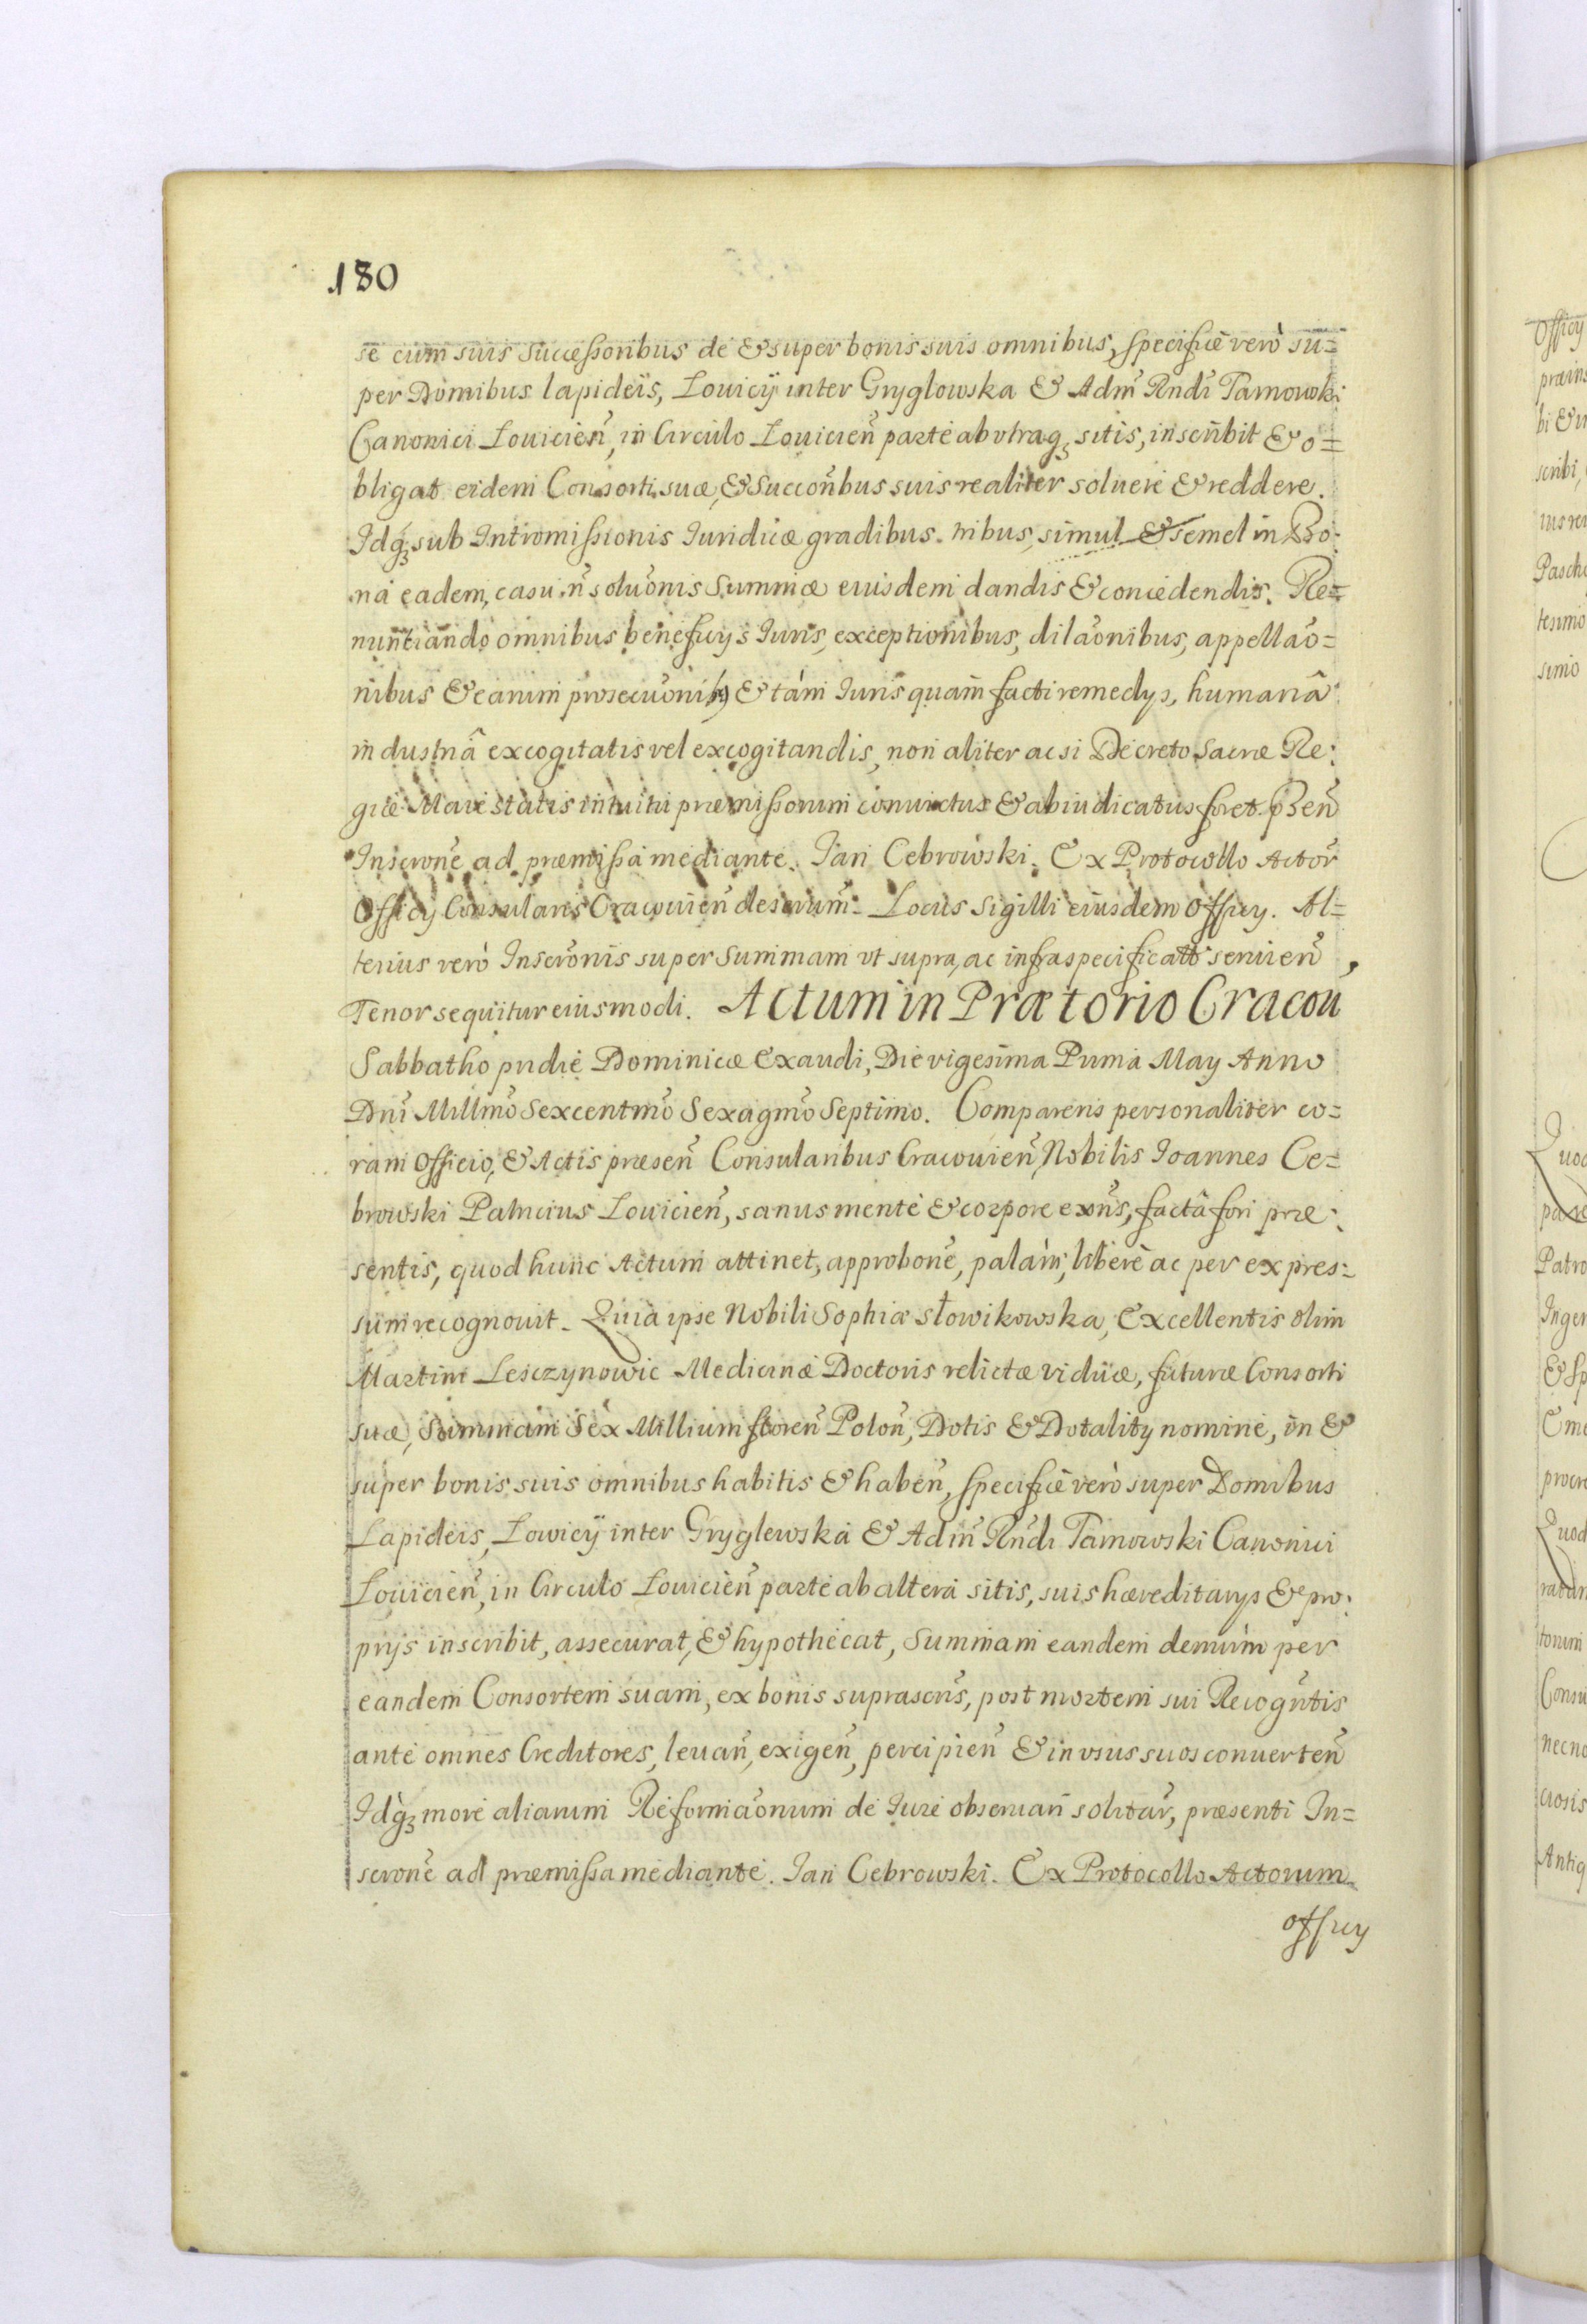 180
se cum suis successoribus de & super bonis suis omnibus, specificè verò su=
per Domibus lapideis, Louicij inter Gryglowska & Adm̃ Rndi Tarnowski
Canonici Louicien̄, in Circulo Louicien̄ parte ab vtraq; sitis, inscribit & o=
bligat eidem Consorti suæ, & Succoribus suis realiter soluere & reddere.
Idq; sub Intromissionis Iuridicæ gradibus tribus, simul & semel in Bo:
na eadem, casu ñ soluonis Summæ eiusdem dandis & concedendis. Re=
nuntiando omnibus beneficijs Iuris, exceptionibus, dilaonibus, appellao=
nibus & earum prosecuonib9 & tàm Iuris quam facti remedijs, humanâ
industriâ excogitatis vel excogitandis, non aliter ac si Decreto Sacræ Re:
giæ Maiestatis intuitu præmissorum conuictus & abiudicatus foret. p̃sen̄
Inscrone ad præmissa mediante. Jan Cebrowski. Ex Protocollo Actor̄
Officij Consularis Cracouien̄ descrum̄. Locus Sigilli eiusdem Officij. Al=
terius verò Inscronis super Summam vt supra, ac infraspecificatā seruien̄,
Tenor sequitur eiusmodi. Actum in Prætorio Cracou
Sabbatho pridie Dominicæ Exaudi, Die vigesima Prima May Anno
Dn̄i Millmo Sexcentmo Sexagmo Septimo. Comparens personaliter co=
ram Officio, & Actis præsen̄ Consularibus Cracouien̄, Nobilis Ioannes Ce=
browski Patricius Louicien̄, sanus mente & corpore exn̄s, factâ fori præ:
sentis, quod hunc Actum attinet, approbone, palàm, liberè ac per expres=
sum recognouit. Quia ipse Nobili Sophiæ Słowikowska, Excellentis olim
Martini Lesczynowic Medicinæ Doctoris relictæ viduæ, futuræ Consorti
suæ, Summam Sex Millium floren̄ Polon̄, Dotis & Dotalitij nomine, in &
super bonis suis omnibus habitis & haben̄, specificè verò super Domibus
Lapideis, Lowicij inter Gryglewska & Adm̄ Rn̄di Tarnowski Canonici
Louicien̄, in Circulo Louicien̄ parte ab altera sitis, suis hæreditarijs & pro:
prijs inscribit, assecurat, & hypothecat, Summam eandem demùm per
eandem Consortem suam, ex bonis suprascris, post mortem sui Recogn̄tis
ante omnes Creditores, leuan̄, exigen̄, percipien̄ & in vsus suos conuerten̄
Idq; more aliarum Reformaonum de Iure obseruari solitar̄, præsenti In=
scrone ad præmissa mediante. Jan Cebrowski. Ex Protocollo Actorum
Officij